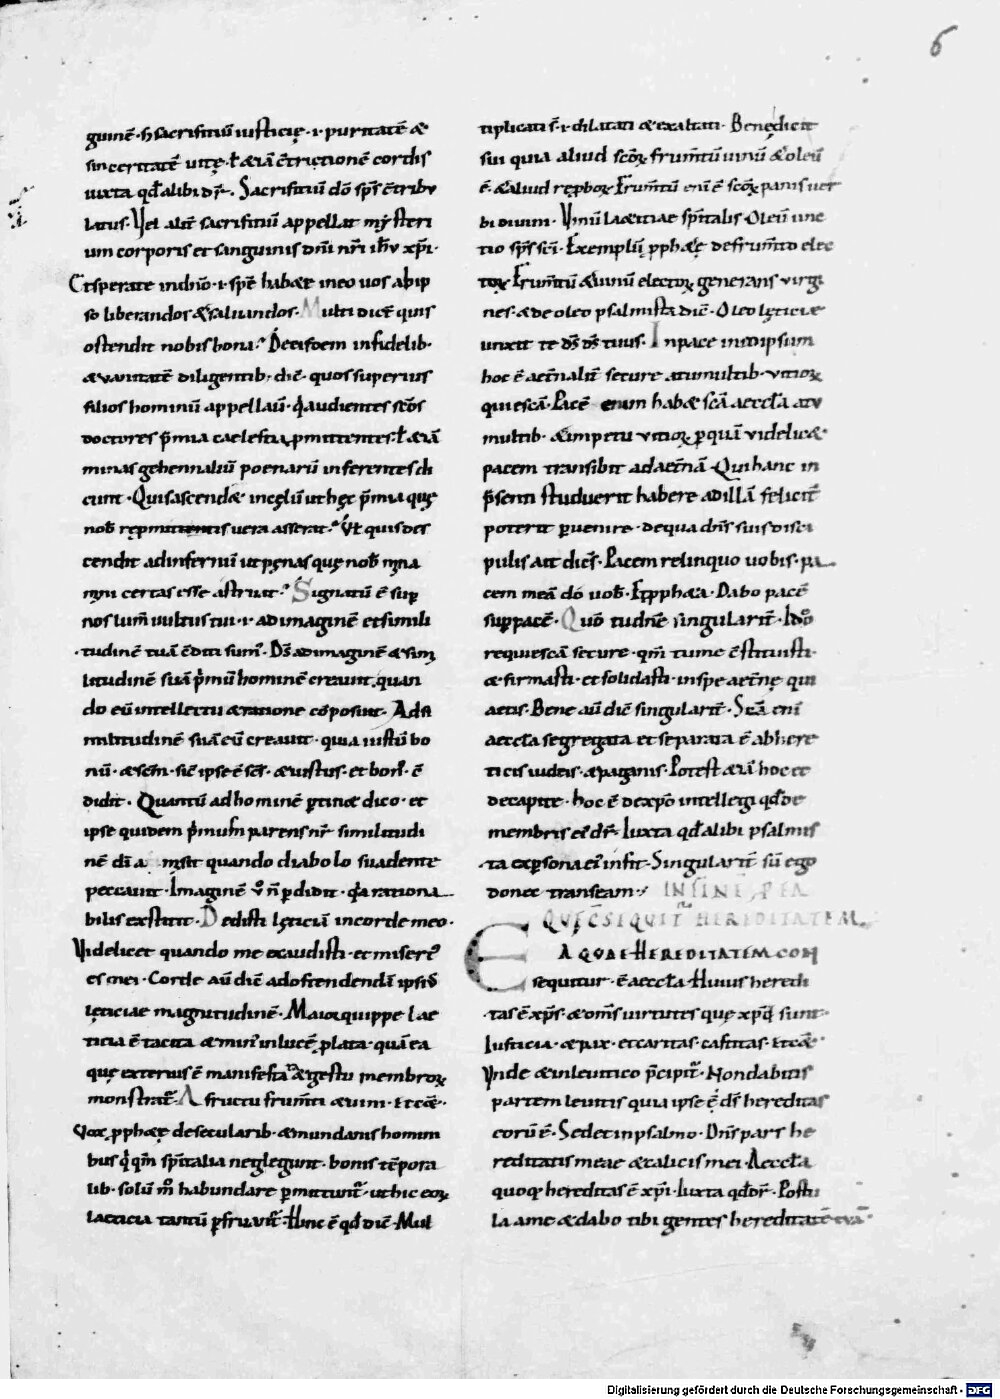 6
guinē · h̄ sacrifitiū iusticię · i · puritatē &
sinceritatē uitę · ł &iā c̄tricionē cordis
iuxta qđ alibi dr̄ · Sacrifitiū dō sp̄s c̄tribu
latus · Vel alit̄ sacrifitiū appellat mysteri
um corporis et sanguinis dn̄i nr̄i ihū xp̄i ·
Et sperate indn̄o · i · spē habete in eo uos a
so liberandos & saluandos · Multi dict̄ quis
ostendit nobis bona · De eisdem infidelib ·
& uanitatē diligentib ; dic̄ · quos superius
filios hominū appellau · q audientes scōs
doctores p̄mia caelestia pmittentes · ł &iā
minas gehennaliū poenarū inferentes di
cunt · Quis ascend& in cęlū ut hęc p̄mia quę
nob̄ repmittentis uera asserat · Vł quis des
cendit ad infernū ut pęnas quę nob̄ mina
certas esse astruat · Signatū ē sup
nos lum̄ uultus tui · i · ad imaginē et simili
tudinē tuā c̄diti sum · Ds̄ ad imaginē & sim
litudinē suā p̄mū hominē creauit quan
do eū intellectu & ratione cōposuit · Ad si
militudinē suā eū creauit · quia iustū bo
nū · & scm̄ · sic ipse ē scs̄ · & iustus · et bon · c̄
didit · Quantū ad hominē ptin& dico · et
ipse quidem p̄mum parens nr̄ similitudi
nē dī amisit quando diabolo suadente
peccauit · Imaginē ū n̄ pdidit · qa rationa
bilis exstitit · Dedisti lęticiā in corde meo ·
Videlicet quando me exaudisti · et misert
es mei · Corde aū dic̄ ad ostendendā ipsius
lęticiae magnitudinē · Maior quippe lae
ticia ē tacita & min in lucē plata · quā ea
quę exterius ē manifesta & gestu membroꝝ
monstrat · A fructu frum̄ti & uini · et cae ·
Vox pphę de secularib · & mundanis homini
bus q qm̄ sp̄italia neglegunt · bonis tēpora
lib · solū m̄ habundare pmittunt · ut hic eoꝝ
laeticia tantū pfruant · Hinc ē qđ dic̄ · Mul
tiplicati s̄ · i · dilatati & exaltati · Benędicit
sui quia aliud scōꝝ frum̄tū uinū & oleū
ē · & aliud rępboꝝ · Frum̄tū eni ē scōꝝ panis uer
bi diuini · Vinū laetitiae sp̄italis · Oleū unc
tio sp̄s sci · Exemplū pphę de frum̄to elec
toꝝ · Frum̄tū & uinū electoꝝ generans virgi
nes · & de oleo psalmista dic̄ · Oleo lęticiae
unxit te ds̄ ds̄ tuus · In pace in idipsum
hoc ē aetn̄alit̄ secure a tumultib · vitioꝝ
quiescā · Pacē enim hab& scā aeccła a tu
multib · & impetu vitioꝝ p quā videlic&
pacem transibit ad aetn̄ā · Qui hanc in
p̄senti studuerit habere ad illā felicit̄
poterit puenire · de qua dn̄s suis disci
pulis ait dices · Pacem relinquo uobis · pa
cem meā do uob̄ · Et pph&a · Dabo pacē
sup pacē · Quō tu dn̄e singularit̄ · Ideo
requiescā secure · qm̄ tu me c̄stituisti ·
& firmasti · et solidasti · in spe aetn̄ę qui
aetis · Bene aū dic̄ singularit̄ · Scā eni
aeccła segregata et separata ē ab here
ticis iudeis · & paganis · Potest &iā hoc et
de capite · hoc ē dexpo intellegi qđ de
membris ei dr̄ · Iuxta qđ alibi psalmis
ta expsona ei infit · Singularit̄ sū ego
donec transeam · IN FINE, P EA
QUĘ C̄SEQUIT HEREDITATEM
EA QUAE HEREDITATEM CON
sequitur · ē aeccła · Huius heredi
tas ē xp̄s · & om̄s uirtutes quę xp̄i sunt ·
Iusticia · & pax · et caritas · castitas · et cae ·
Vnde & in leuitico p̄cipit · Non dabitis
partem leuitis quia ipse ē ds̄ hereditas
corū ē · Sed et in psalmo · Dn̄s pars he
reditatis meae & calicis mei · Aeccła
quoq hereditas ē xp̄i · Iuxta qđ dr̄ · Postu
la a me & dabo tibi gentes hereditatē tuā ·
Digitalisierung gefördert durch die Deutsche Forschungsgemeinschaft - DFG